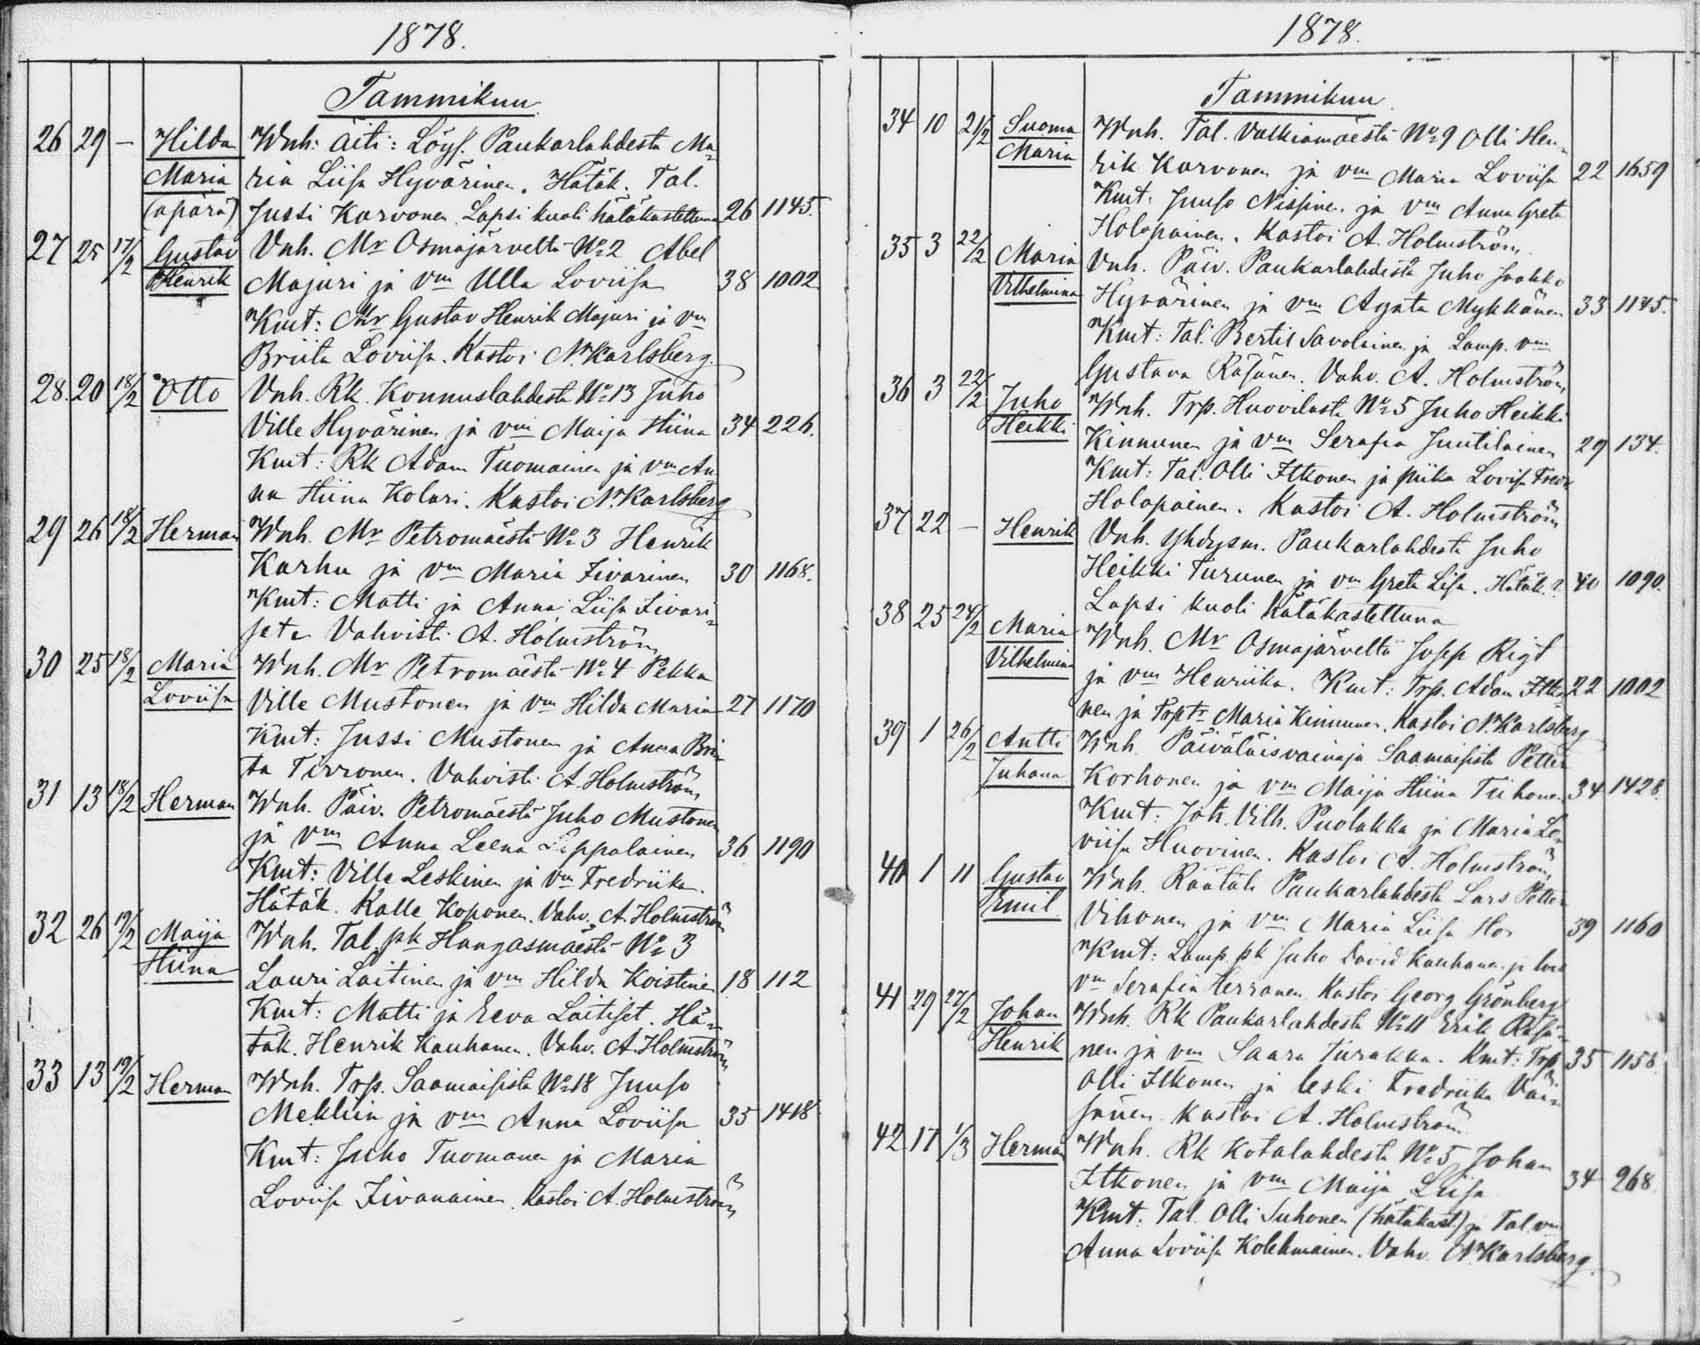 1878.
Tammikuu
26 29 — Hilda Wnh: äiti: Löys. Paukarlahdesta Ma=
Maria ria Liisa Hyvärinen. Hätäk. Tal.
(äpärä) Jussi Karvonen. Lapsi kuoli hätäkastettuna 26 1145.
27 25 17/2 Gustav Vnh. Mr Osmajärveltä No 2 Abel
Henrik Majuri ja vm Ulla Loviisa 38 1002
Kmt: Mr Gustav Henrik Majuri ja vm
Briita Loviisa. Kastoi N. Karlsberg.
28. 20 18/2 Otto Vnh. Rk. Konnuslahdesta No 13 Juho
Ville Hyvärinen ja vm Maija Stiina 34 226.
Kmt: Rk Adam Tuomainen ja vm An
na Stiina Kolari. Kastoi N. Karlsberg
29 26 18/2 Herman Wnh. Mr Petromäestä No 3 Henrik
Karhu ja vm Maria Iivarinen 30 1168.
Kmt: Matti ja Anna Liisa Iivari=
set. Vahvisti A. Holmström
30 25 18/2 Maria Wnh. Mr Petromäestä No 4 Pekka
Loviisa Ville Mustonen ja vm Hilda Maria 27 1170
Kmt: Jussi Mustonen ja Anna Brii
ta Tirronen. Vahvisti A. Holmström
31 13 18/2 Herman Wnh. Päiv. Petromäestä Juho Mustonen
ja vm Anna Leena Lappalainen 36 1190
Kmt: Ville Leskinen ja vm Fredriika.
Hätäk. Kalle Koponen. Vahv. A. Holmström
32 26 19/2 Maija Wnh. Tal. pk Hangasmäestä No 3
Stiina Lauri Laitinen ja vm Hilda Koistinen 18 112
Kmt: Matti ja Eeva Laitiset. Hä=
täk. Henrik Kauhanen. Vahv. A. Holmström
33 13 19/2 Herman Wnh. Trp. Saamaisista No 18 Juuso
Meklin ja vm Anna Loviisa 35 1418
Kmt: Juho Tuomanen ja Maria
Loviisa Iivanainen. Kastoi A. Holmström
1878.
Tammikuu
34 10 21/2 Suoma Wnh. Tal. Valkiamäestä No 9 Olli Hen=
Maria rik Karvonen ja vm Maria Loviisa 22 1659
Kmt. Juuso Nissine. ja vm Anna Greta
Holopainen. Kastoi A. Holmström
35 3 22/2 Maria Vnh. Päiv. Paukarlahdesta Juho Jaakko
Vilhelmina Hyvärinen ja vm Agata Mykkänen 33 1145.
Kmt: Tal. Bertil Savolainen ja Lamp. vm
Gustava Räsänen. Vahv. A. Holmström
36 3 22/2 Juho Wnh. Trp. Huovilasta No 5 Juho Heikki
Heikki Kinnunen ja vm Serafia Juutilainen 29 134.
Kmt: Tal. Olli Itkonen ja piika Lovisa Fredr
Holopainen. Kastoi A. Holmström
37 22 — Henrik Vnh. yhdysm. Paukarlahdesta Juho
Heikki Turunen ja vm Greta Lisa. Hätäk.? 40 1090.
Lapsi kuoli hätäkastettuna
38 25 24/2 Maria Wnh. Mr Osmajärveltä Josep Rigt
Vilhelmina ja vm Henriika. Kmt: Trp. Adam Itko 22 1002
nen ja Trptr Maria Kinnunen. Kastoi N. Karlsberg
39 1 26/2 Antti Wnh. Päiväläisvainaja Saamaisista Petter
Juhana Korhonen ja vm Maija Stiina Tiihonen 34 1428.
Kmt: Joh. Vilh. Puolakka ja Maria Lo
viisa Huovinen. Kastoi A. Holmström
40 1 11 Gustav Wnh. Räätäli Paukarlahdesta Lars Petter
Emil Vihonen ja vm Maria Liisa Hor 39 1160
Kmt: Lamp. pk Juho David Kauhanen ja
vm Serafia Terranen. Kastoi Georg Grönberg
41 29 27/2 Johan Wnh. Rk Paukarlahdesta No 11 Erik Räsä=
Henrik nen ja vm Saara Turakka. Kmt: Trp. 35 1158
Olli Itkonen ja leski Fredriika Väi=
sänen. Kastoi A. Holmström
42 17 1/3 Herman Wnh. Rk Kotalahdesta No 5 Johan
Itkonen ja vm Maija Liisa 34 268.
Kmt. Tal. Olli Suhonen (hätäkast) ja Tal. vm
Anna Loviisa Kolehmainen. Vahv. N. Karlsberg.